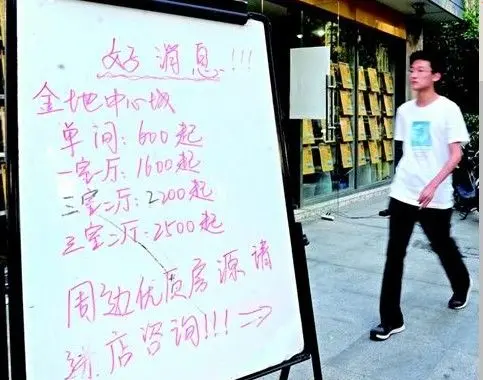 好消息!!!
金地中心城
单间:600起
一室一厅:1600起
三室二厅:2200起
三室二厅:2500起
周边优质房源请
店咨询!!!